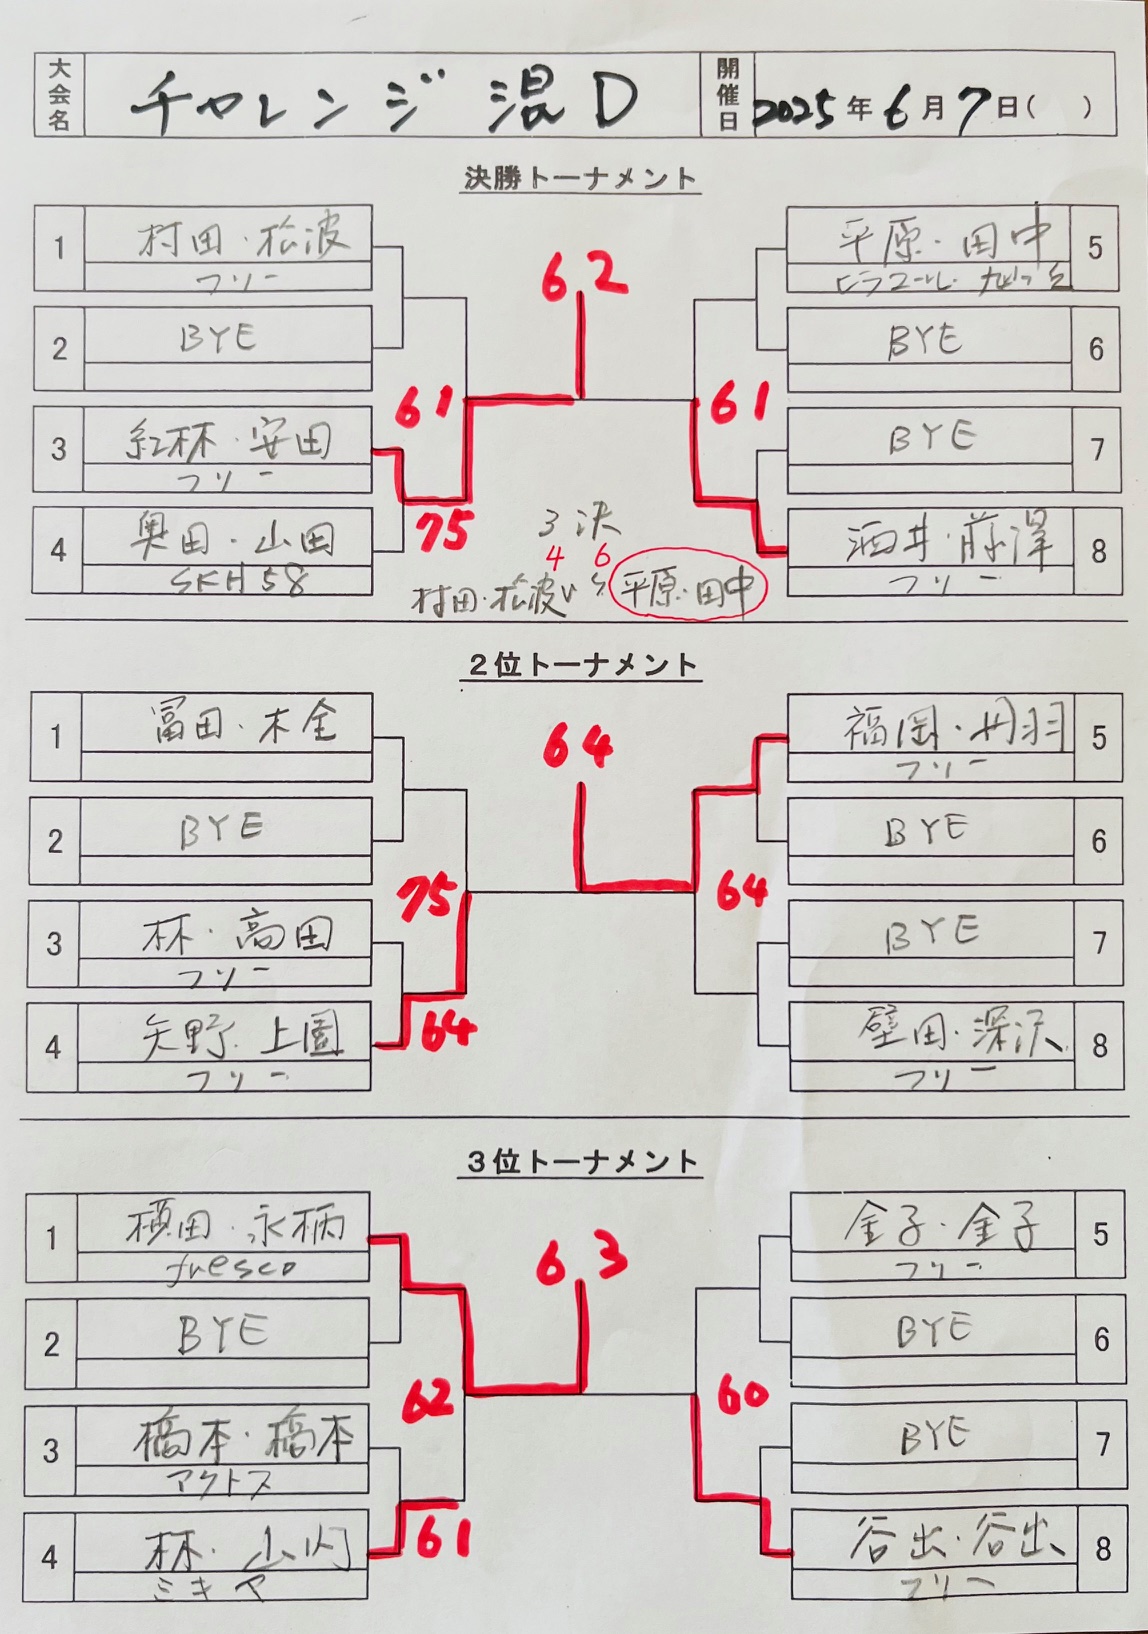 大会名 チャレンジ 混D 開催日 2025年6月7日( )
決勝トーナメント
1 村田・松波
フリー
2 BYE
3 紅林・安田
フリー
4 奥田・山田
SKH58
5 平原・田中
ヒラコール・
6 BYE
7 BYE
8 酒井・藤澤
フリー
62
61
75
61
3決
4 6
村田・松波 vs 平原・田中
2位トーナメント
1 冨田・木全
2 BYE
3 林・高田
フリー
4 矢野・上園
フリー
5 福岡・丹羽
フリー
6 BYE
7 BYE
8 壁田・深沢
フリー
64
75
64
64
3位トーナメント
1 槙田・永柄
fresco
2 BYE
3 橋本・橋本
アクトス
4 林・山内
ミキヤ
5 金子・金子
フリー
6 BYE
7 BYE
8 谷出・谷出
フリー
63
62
61
60